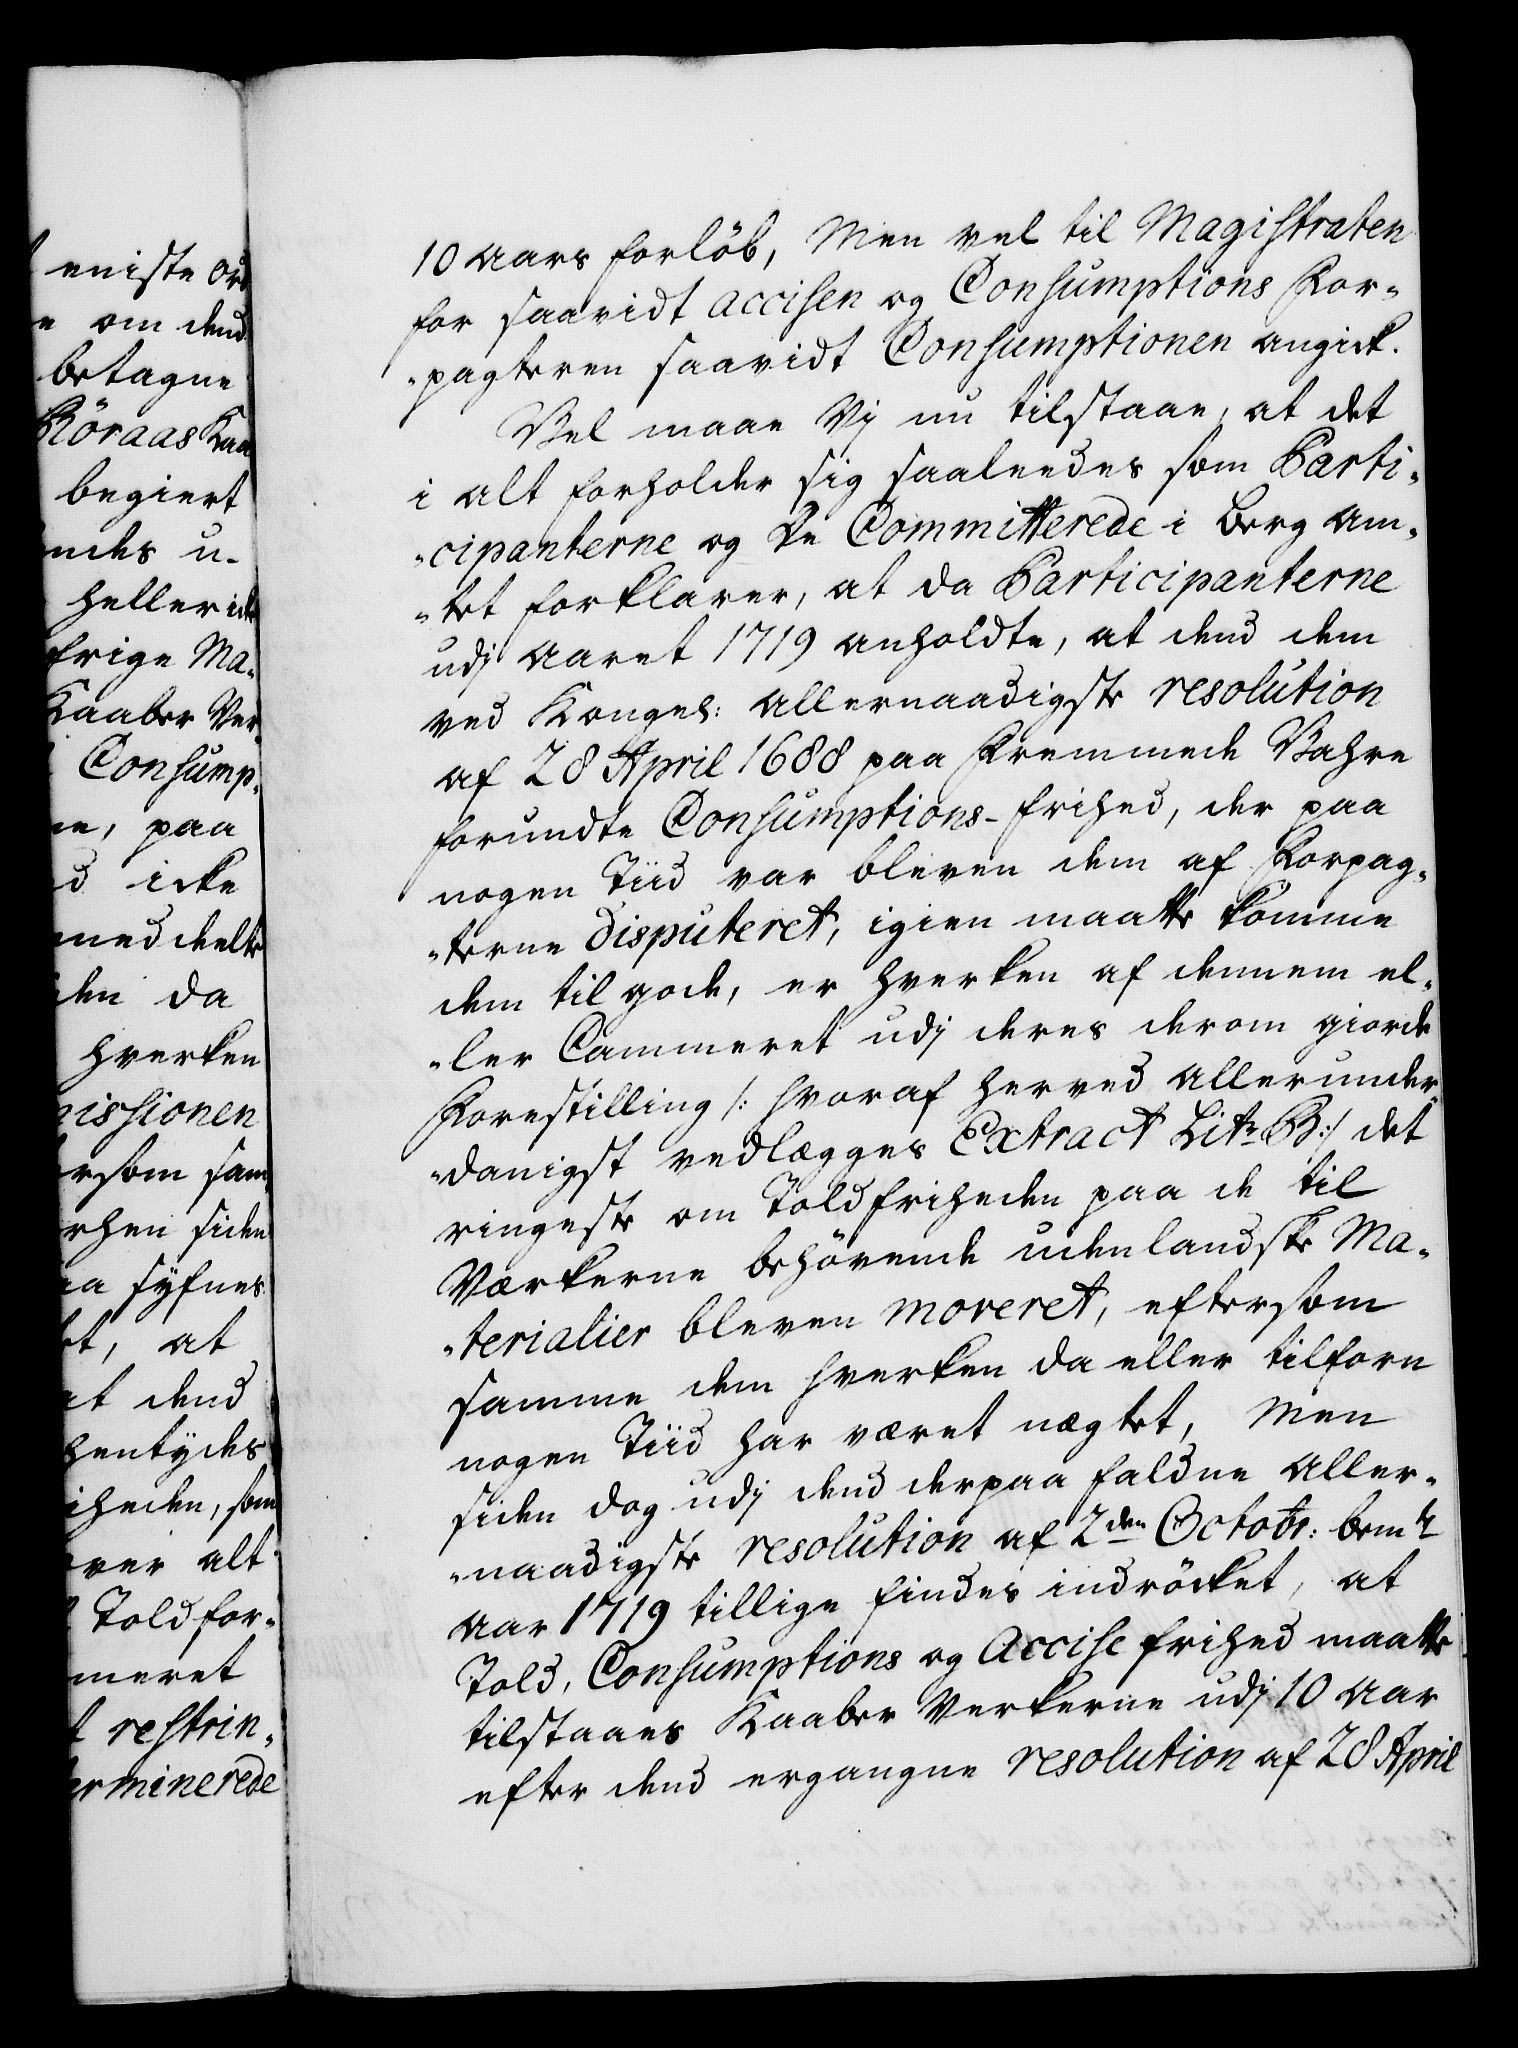 eniste ord
e om dend
betagne
Röraas Kaa
begiert
endes u-
heller icke
frige Ma-
Kaaber Ver
Consump-
ne, paa
d icke
meddeelte
den da
hverken
missionen
ersom sam
rhen siden
aa syfnes
et, at
at dend
hentydes
iheden, som
over alt
Told for-
meret
t restrin-
erminerede
10 aars forlöb, Men vel til Magistraten
for saavidt accisen og Consumptions For-
-pagteren saavidt Consumptionen angick.
Vel maae Vj nu tilstaae, at det
i alt forholder sig saaleedes som Parti-
-cipanterne og De Committerede i Berg Am-
-tet forklarer, at da Participanterne
udj Aaret 1719 anholdte, at dend dem
ved Kongel: Allernaadigste resolution
af 28 April 1688 paa Fremmede Vahre
forundte Consumptions-frihed, der paa
nogen Tiid var bleven dem af Forpag-
-terne disputeret, igien maatte komme
dem til gode, er hverken af dennem el-
-ler Cammeret udj deres derom giorde
Forestilling /: hvoraf herved Allerunder-
-danigst vedlægges Extract Litr B:/ det
ringeste om Toldfriheden paa de til
Værkerne behövende udenlandske Ma-
-terialier bleven moveret, eftersom
samme dem hverken da eller tilforn
nogen Tiid har været nægtet, Men
siden dog udj dend derpaa faldne Aller-
-naadigste resolution af 2den Octobr: bemte
Aar 1719 tillige findes indröcket, at
Told, Consumptions og Accise frihed maatte
tilstaaes Kaaber Verkerne udj 10 Aar
efter dend ergangne resolution af 28 April